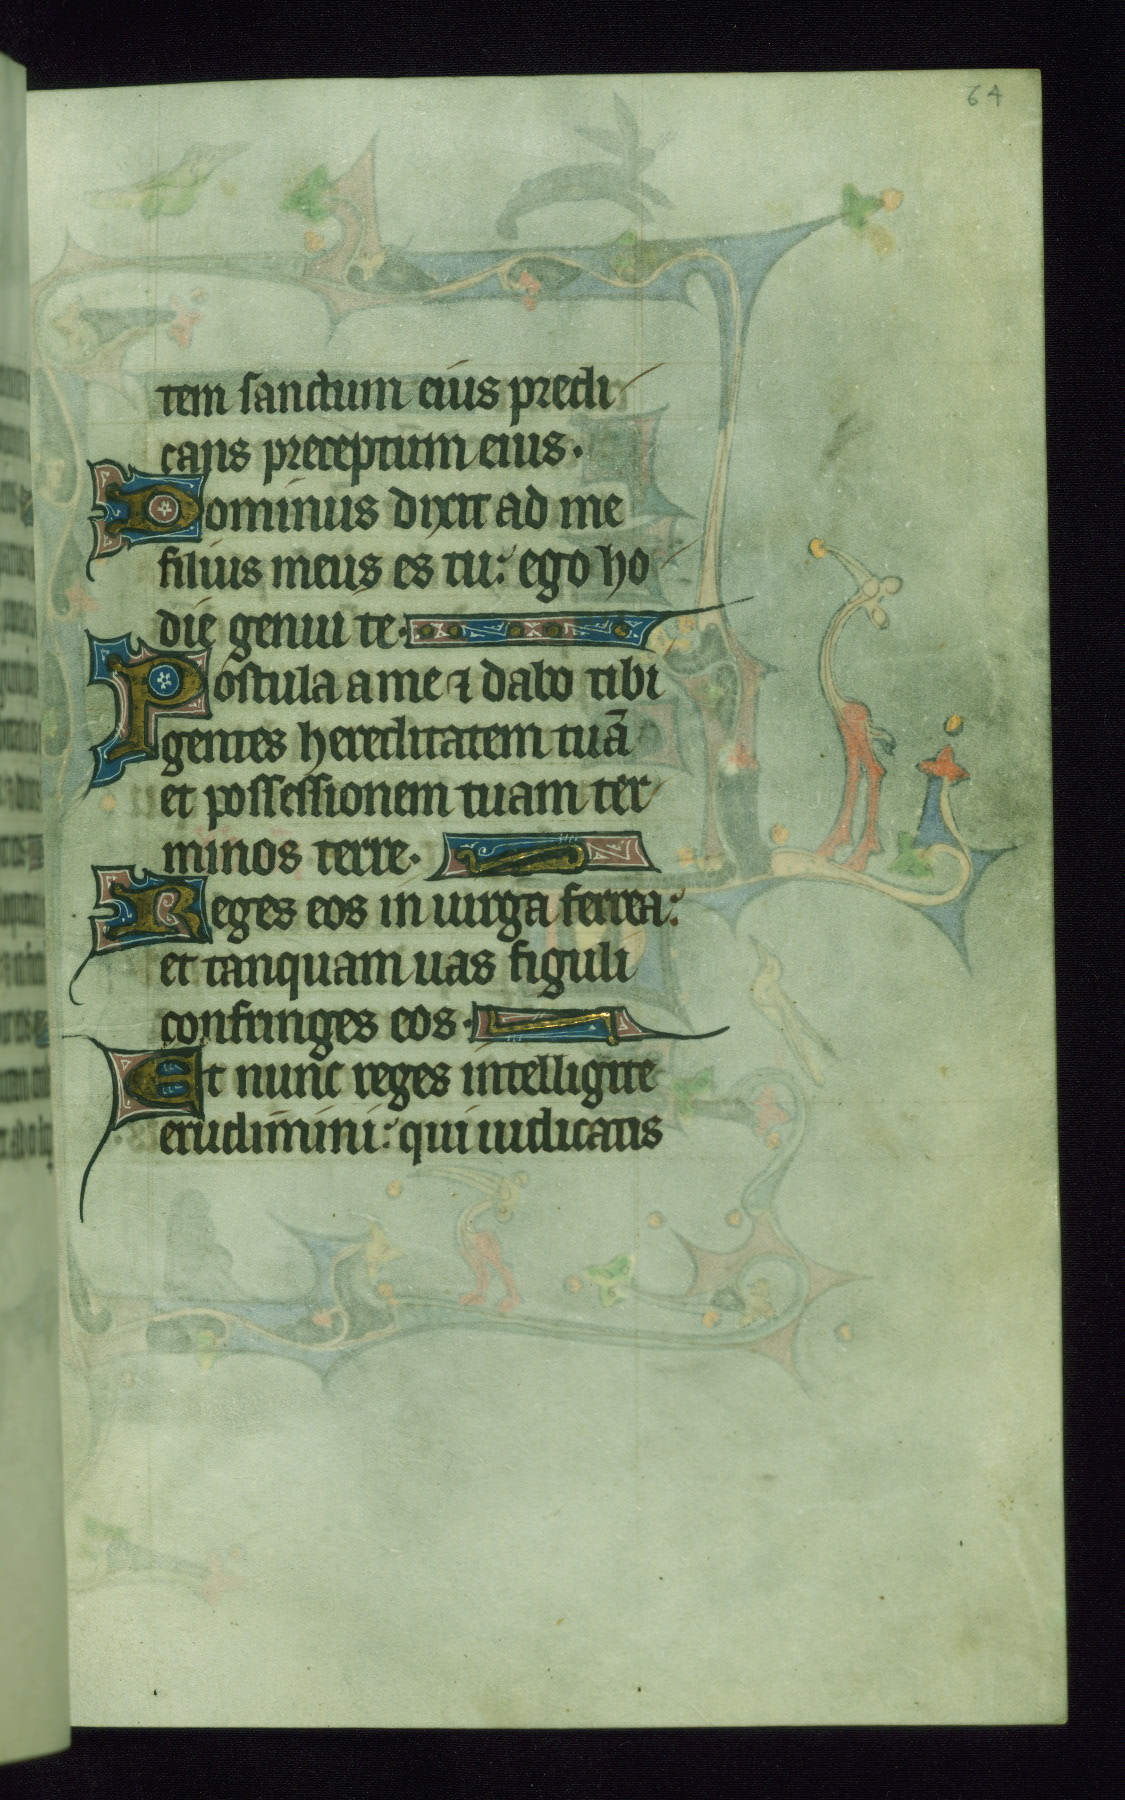 64
tem sanctum eius predi
cans preceptum eius.
Dominus dixit ad me
filius meus es tu: ego ho
die genui te.
Postula a me ⁊ dabo tibi
gentes hereditatem tuā
et possessionem tuam ter
minos terre.
Reges eos in uirga ferrea:
et tanquam uas figuli
confringes eos.
Et nunc reges intelligite
erudimini: qui iudicatis